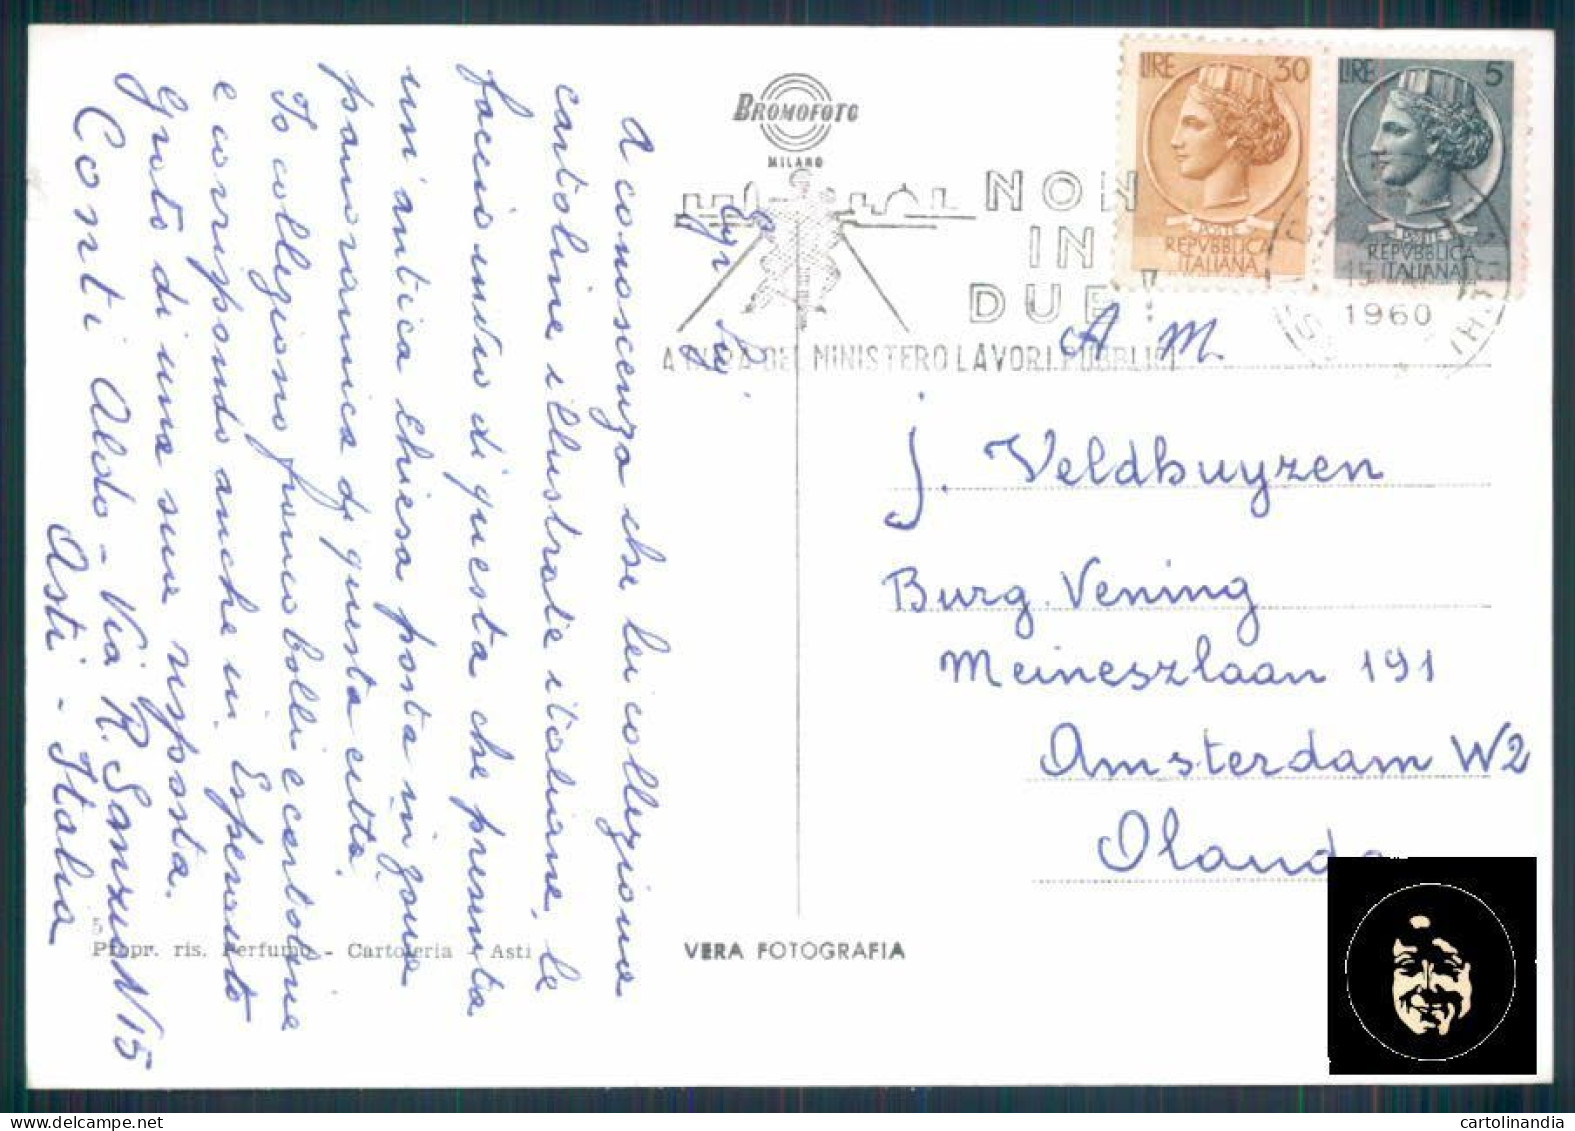 Egr. Sig.
A conoscenza che lei colleziona
cartoline illustrate italiane, le
faccio invio di questa che presenta
un'antica chiesa posta in zona
panoramica di questa città.
Io colleziono francobolli e cartoline
e corrispondo anche in Esperanto
Grato di una sua risposta.
Conti Aldo - Via R. Sanzio N 15
Asti - Italia
5
Propr. ris. Perfumo - Cartoleria - Asti
BROMOFOTO
MILANO
VERA FOTOGRAFIA
NON
IN
DUE!
A CURA DEL MINISTERO LAVORI PUBBLICI
LIRE 30
POSTE
REPVBBLICA
ITALIANA
LIRE 5
POSTE
REPVBBLICA
ITALIANA
15
1960
A M.
J. Veldhuyzen
Burg. Vening
Meineszlaan 191
Amsterdam W2
Olanda
cartolinandia